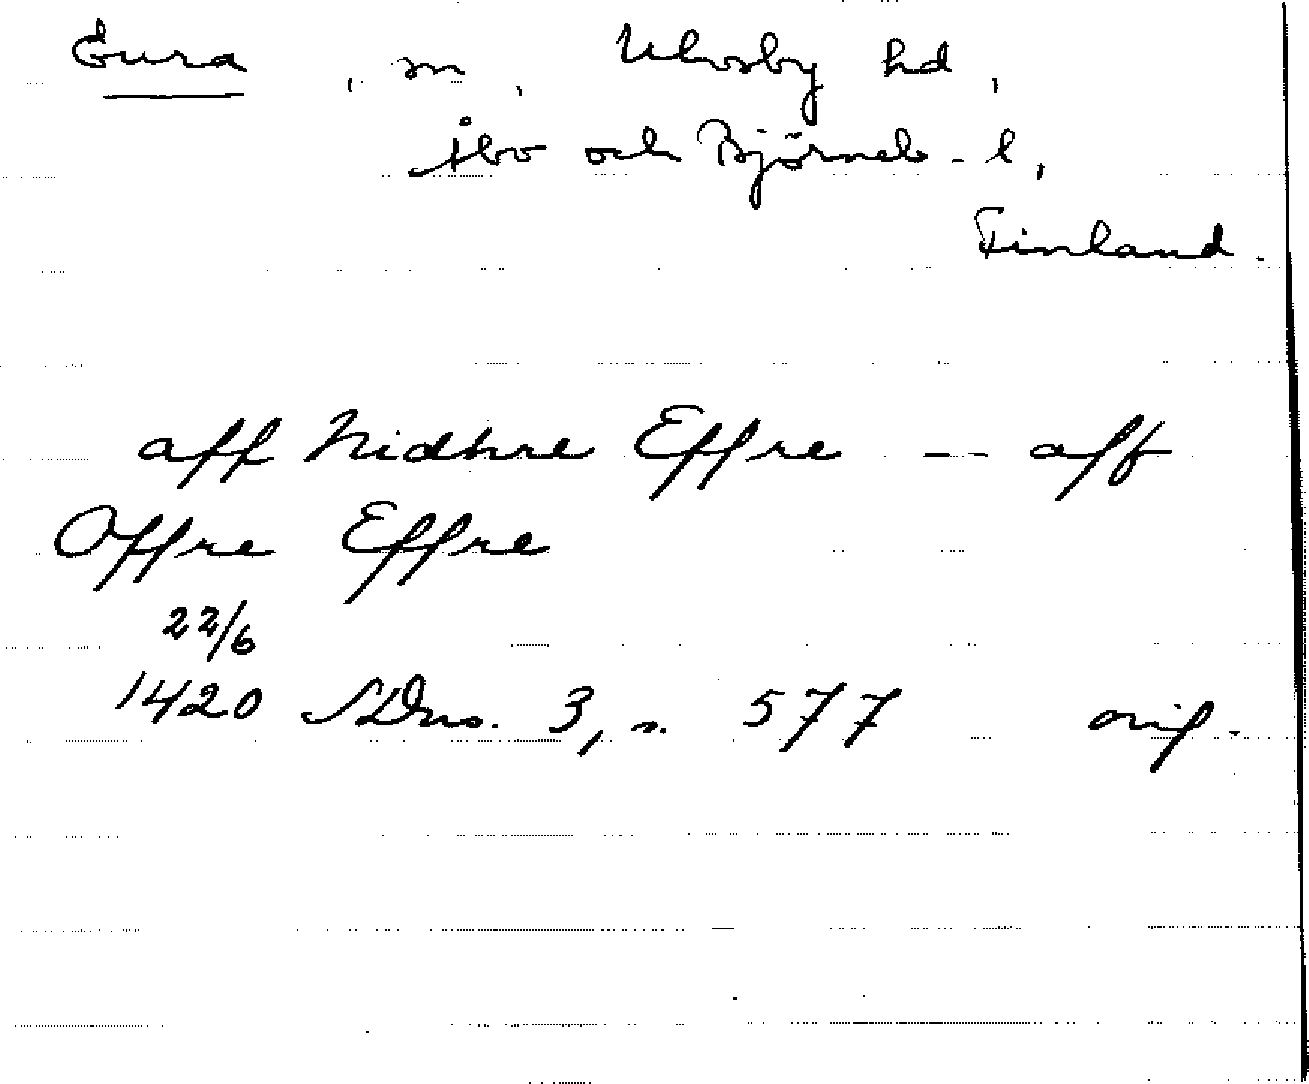 Eura, sn, Ulvsby hd,
Åbo och Björneb-l,
Finland.
aff Nidhre Effre — aff
Offre Effre
22/6
1420 SDns. 3, s. 577 orig.